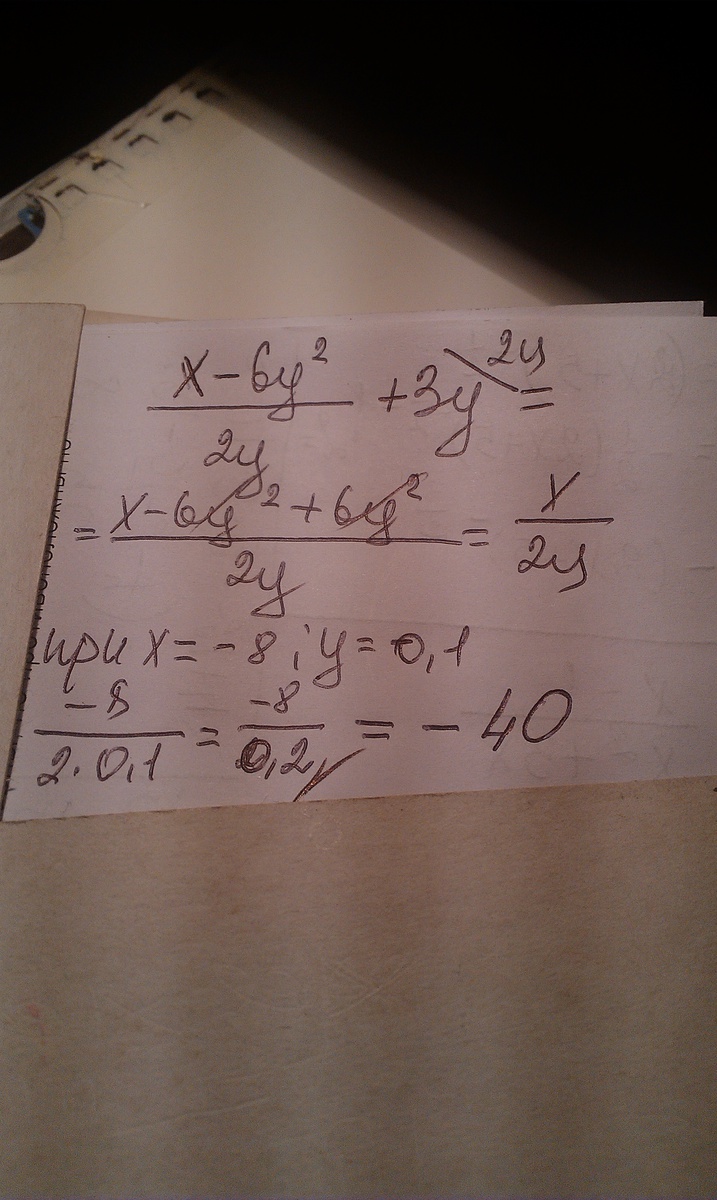 x-6y²/2y +3y\2y =
= x-6y²+6y²/2y = x/2y
при x=-8; y=0,1
-8/2·0,1 = -8/0,2 = -40